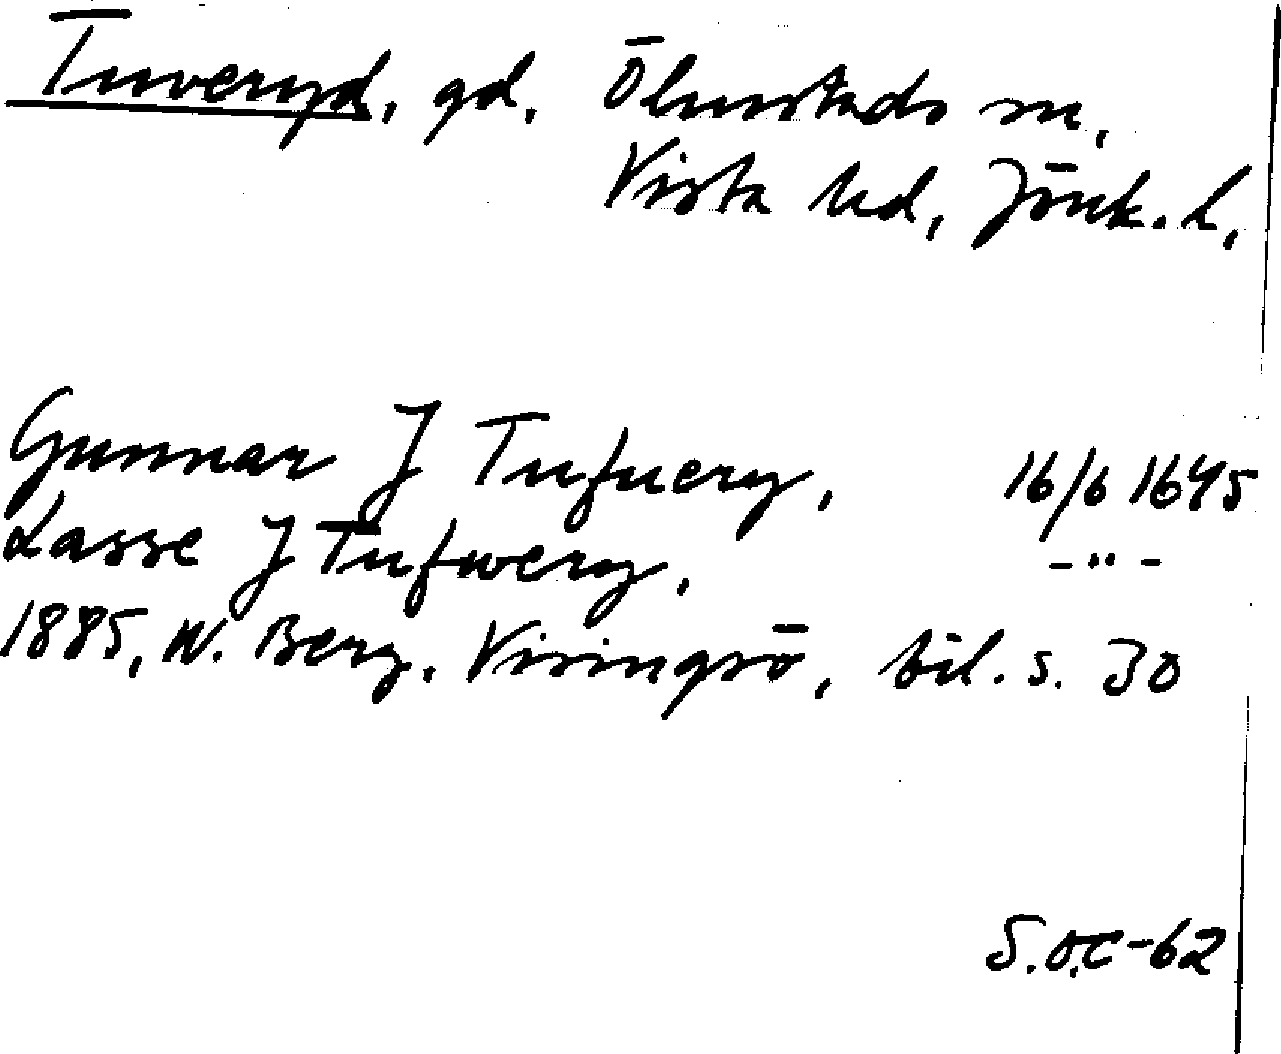 Tuveryd, gd, Ölmstads sn,
Vista hd, Jönk. l,
Gunnar J Tufuery, 16/6 1645
Lasse J Tufwery, -"-
1885, W. Berg, Visingsö, bil. s. 30
S.O.C-62